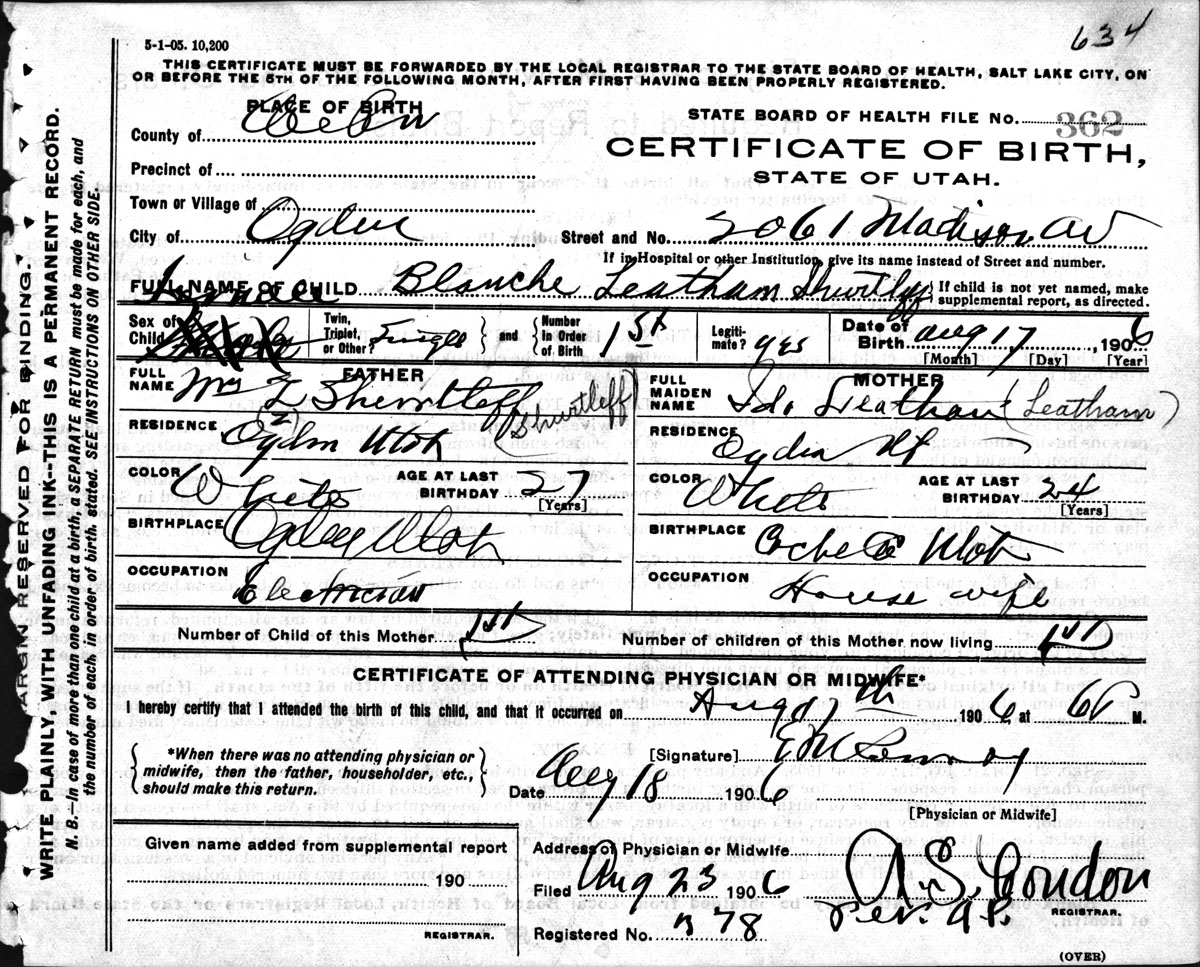 634
5-1-05. 10,200
THIS CERTIFICATE MUST BE FORWARDED BY THE LOCAL REGISTRAR TO THE STATE BOARD OF HEALTH, SALT LAKE CITY, ON
OR BEFORE THE 5TH OF THE FOLLOWING MONTH, AFTER FIRST HAVING BEEN PROPERLY REGISTERED.
PLACE OF BIRTH
STATE BOARD OF HEALTH FILE No. 362
County of Weber
CERTIFICATE OF BIRTH,
STATE OF UTAH.
Precinct of
Town or Village of
City of Ogden Street and No. 2061 Madison Av
If in Hospital or other Institution, give its name instead of Street and number.
FULL NAME OF CHILD Blanche Leatham Shurtleff { If child is not yet named, make supplemental report, as directed.
Female
Sex of Child
Twin, Triplet, or Other? Single } and { Number in Order of Birth 1st
Legitimate? yes
Date of Birth Aug 17, 1906
[Month] [Day] [Year]
FATHER
FULL NAME Wm Z Shurtleff (Shurtleff)
(Z)
RESIDENCE Ogden Utah
COLOR White AGE AT LAST BIRTHDAY 27 [Years]
BIRTHPLACE Ogden Utah
OCCUPATION Electrician
MOTHER
FULL MAIDEN NAME Ida Leatham (Leatham)
RESIDENCE Ogden Ut
COLOR White AGE AT LAST BIRTHDAY 24 [Years]
BIRTHPLACE Utah
OCCUPATION House wife
Number of Child of this Mother 1st Number of children of this Mother now living 1st
CERTIFICATE OF ATTENDING PHYSICIAN OR MIDWIFE*
I hereby certify that I attended the birth of this child, and that it occurred on Aug 17th 1906 at 6 P M.
{ *When there was no attending physician or midwife, then the father, householder, etc., should make this return. }
[Signature]
Date Aug 18 1906
[Physician or Midwife]
Given name added from supplemental report
190
REGISTRAR.
Address of Physician or Midwife
Filed Aug 23 1906 A. S. Condon
per. A.P. REGISTRAR.
Registered No. 378
(OVER)
MARGIN RESERVED FOR BINDING.
WRITE PLAINLY, WITH UNFADING INK--THIS IS A PERMANENT RECORD.
N. B.--In case of more than one child at a birth, a SEPARATE RETURN must be made for each, and
the number of each, in order of birth, stated. SEE INSTRUCTIONS ON OTHER SIDE.